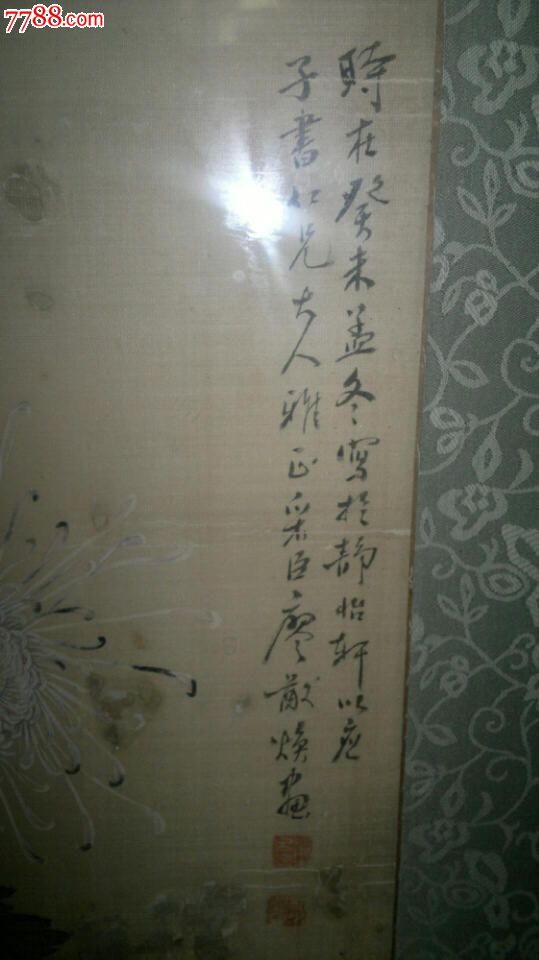 7788.com
時在癸未孟冬寫於靜怡軒以應
子書仁兄大人雅正采臣廖猷煥畫